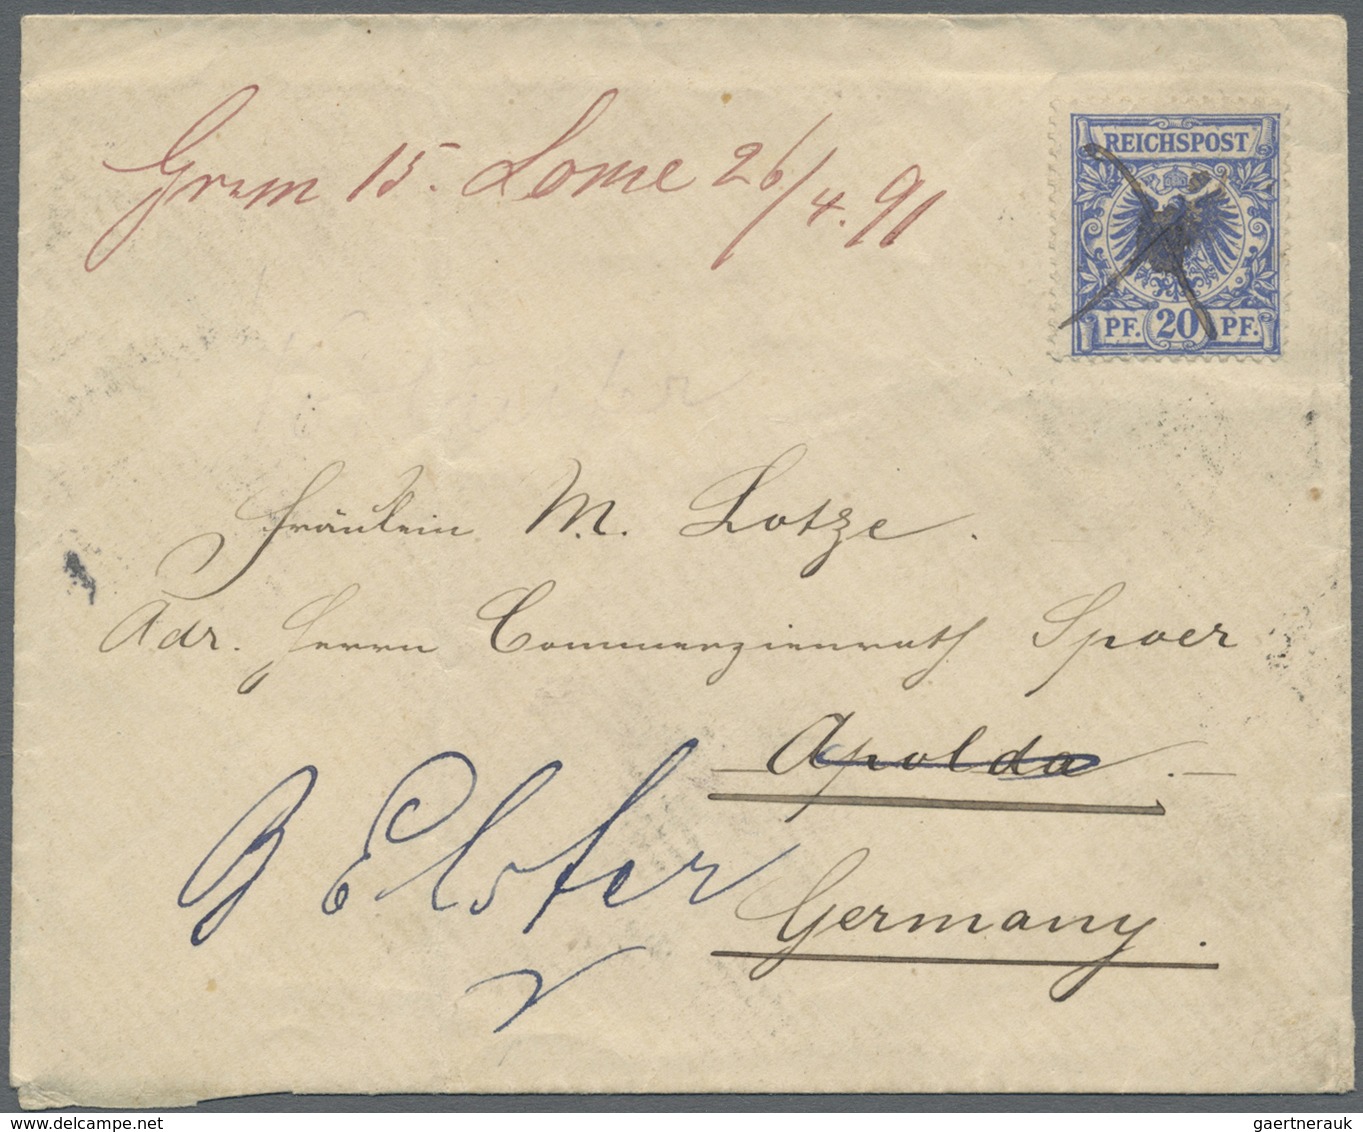 Grm 15. Lome 26/4.91
REICHSPOST
PF. 20 PF.
Fräulein M. Lotze.
Adr. Herrn Commerzienrath Spoer
Apolda.
B Elster
Germany.
gaertnerauk
my.delcampe.com